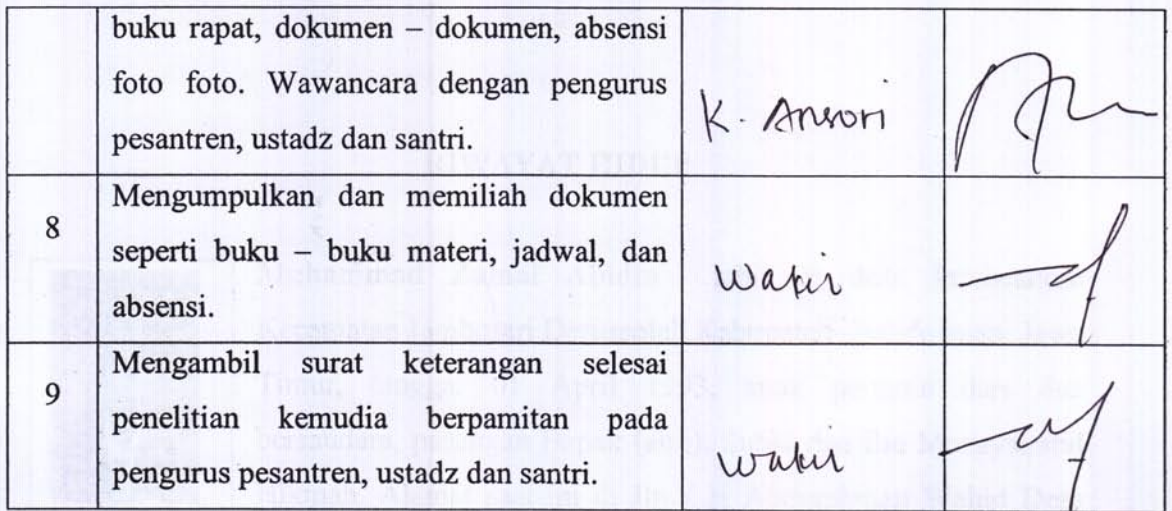 buku rapat, dokumen – dokumen, absensi
foto foto. Wawancara dengan pengurus
pesantren, ustadz dan santri.
K. Ansori
8
Mengumpulkan dan memiliah dokumen
seperti buku – buku materi, jadwal, dan
absensi.
9
Mengambil surat keterangan selesai
penelitian kemudia berpamitan pada
pengurus pesantren, ustadz dan santri.